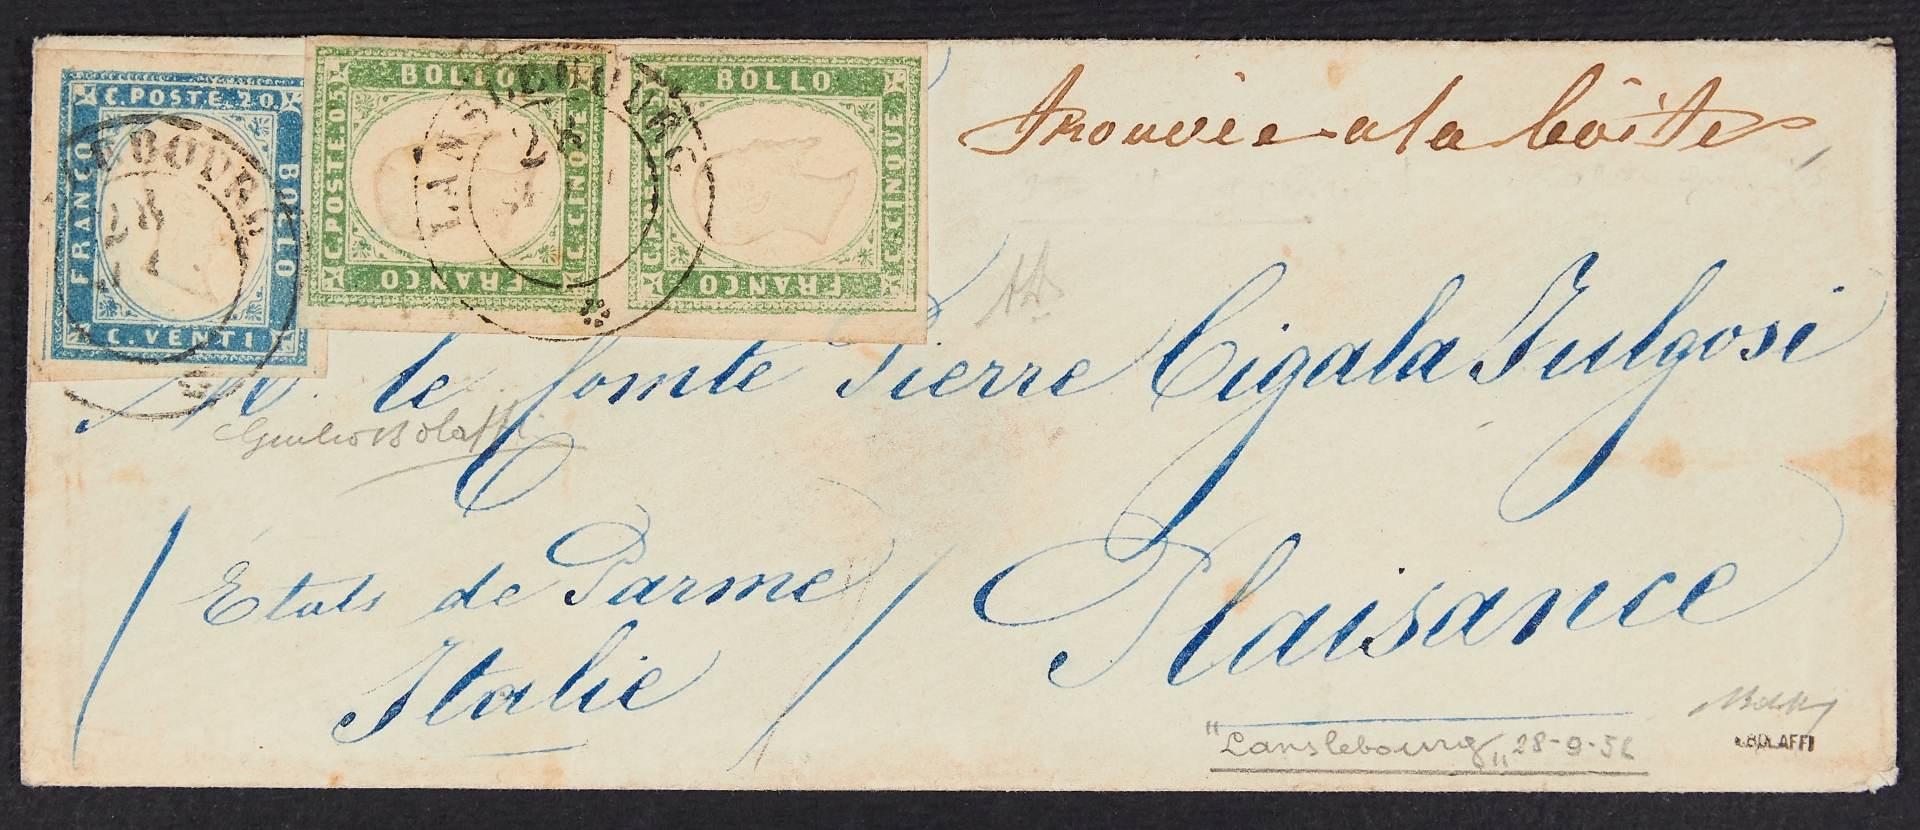 C. POSTE. 20
FRANCO
BOLLO
C. VENTI
BOLLO
C. POSTE. 05
C. CINQUE
FRANCO
BOLLO
C. CINQUE
FRANCO
LANSLEBOURG
28
EBOURG
28
trouvée a la boîte
M. le Comte Pierre Cigala Fulgosi
Giulio Bolaffi
Plaisance
États de Parme
Italie
"Lanslebourg" 28-9-56
BOLAFFI